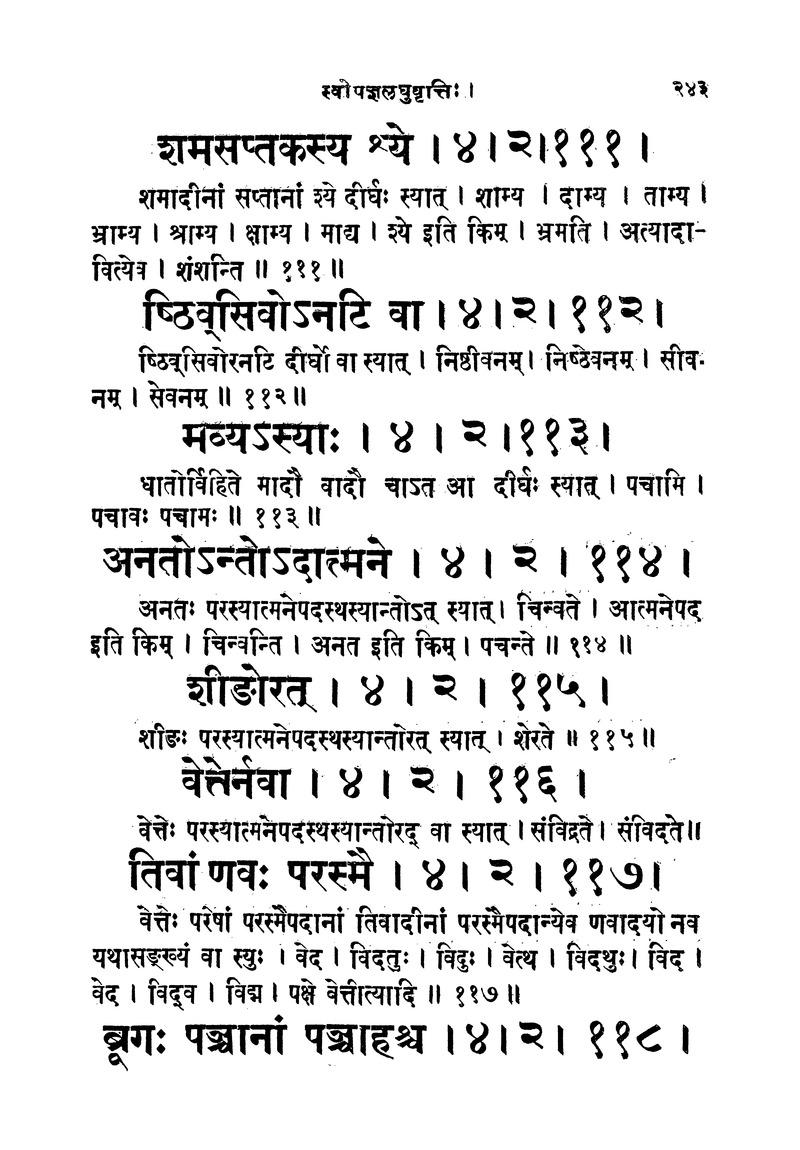 स्वोपज्ञलघुवृत्तिः । २४३
शमसप्तकस्य श्ये । ४ । २ । १११ ।
शमादीनां सप्तानां श्ये दीर्घः स्यात् । शाम्य । दाम्य । ताम्य ।
भ्राम्य । श्राम्य । क्षाम्य । माद्य । श्ये इति किम् । भ्रमति । अत्यादा-
वित्येव । शंशन्ति ॥ १११ ॥
ष्ठिव्सिवोऽनटि वा । ४ । २ । ११२ ।
ष्ठिव्सिवोरनटि दीर्घो वा स्यात् । निष्ठीवनम् । निष्ठेवनम् । सीव-
नम् । सेवनम् ॥ ११२ ॥
मव्यऽस्याः । ४ । २ । ११३ ।
धातोर्विहिते मादौ वादौ चाऽत आ दीर्घः स्यात् । पचामि ।
पचावः पचामः ॥ ११३ ॥
अनतोऽन्तोऽदात्मने । ४ । २ । ११४ ।
अनतः परस्यात्मनेपदस्थस्यान्तोऽत् स्यात् । चिन्वते । आत्मनेपद
इति किम् । चिन्वन्ति । अनत इति किम् । पचन्ते ॥ ११४ ॥
शीङोरत् । ४ । २ । ११५ ।
शीङः परस्यात्मनेपदस्थस्यान्तोरत् स्यात् । शेरते ॥ ११५ ॥
वेत्तेर्नवा । ४ । २ । ११६ ।
वेत्तेः परस्यात्मनेपदस्थस्यान्तोरद् वा स्यात् । संविद्रते । संविदते ॥
तिवां णवः परस्मै । ४ । २ । ११७ ।
वेत्तेः परेषां परस्मैपदानां तिवादीनां परस्मैपदान्येव णवादयो नव
यथासङ्ख्यं वा स्युः । वेद । विदतुः । विदुः । वेत्थ । विदथुः । विद ।
वेद । विद्व । विद्म । पक्षे वेत्तीत्यादि ॥ ११७ ॥
ब्रूगः पञ्चानां पञ्चाहश्च । ४ । २ । ११८ ।